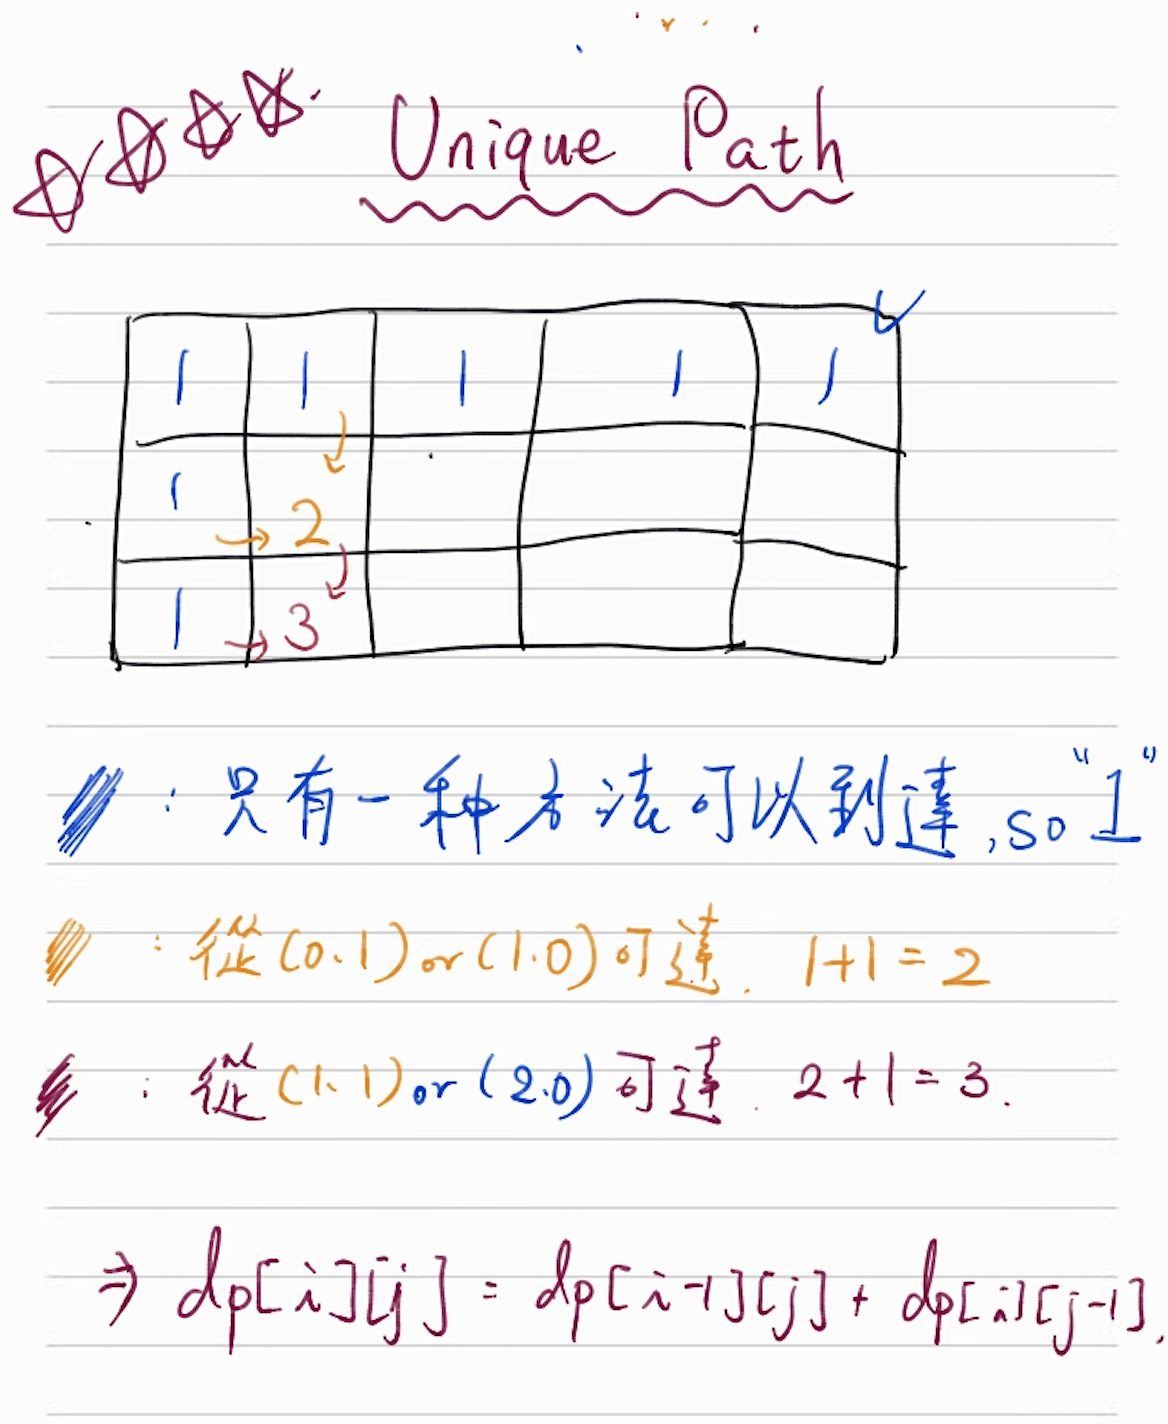 Unique Path
1 1 1 1 1
1 2
1 3
: 只有一种方法可以到達, so "1"
: 從 (0.1) or (1.0) 可達. 1+1=2
: 從 (1.1) or (2.0) 可達. 2+1=3.
⇒ dp[i][j] = dp[i-1][j] + dp[i][j-1].